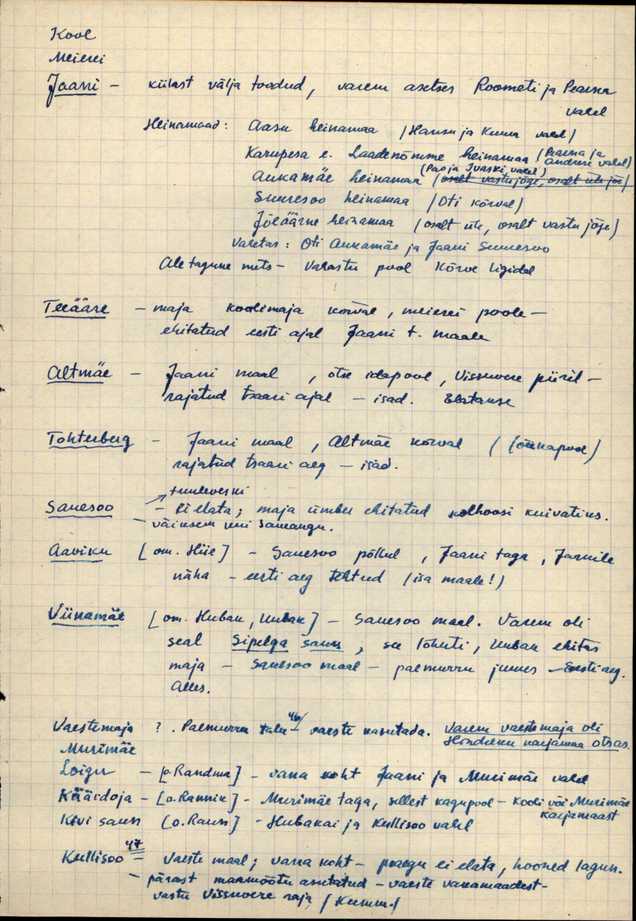 Kool
Meierei
Jaani – külast välja toodud, varem asetses Roometi ja Pearna
vahel
Heinamaad: Aasu heinamaa (Hansu ja Kuura vahel)
Karupesa e. Laadenõmme heinamaa (Pearna ja Andruse vahel)
Aukamäe heinamaa (Pao ja Juaski vahel) (osalt vastu jõge, osalt üle jõe)
Suuresoo heinamaa (Oti kõrval)
Jõeäärne heinamaa (osalt üle, osalt vastu jõge)
Vahetas: Oti Aukamäe ja Jaani Suuresoo
Aletagune mets – Valastu pool Kõrve ligidal
Teeääre – maja koolimaja kõrval, meierei poole –
ehitatud eesti ajal Jaani t. maale
Altmäe – Jaani maal, otse idapool, Vissuvere piiril –
rajatud tsaari ajal – isad. Elatakse
Tohterberg – Jaani maal, Altmäe kõrval (lõunapool)
rajatud tsaari aeg – isad.
tuuleveski
Sauesoo – Ei elata; maja ümber ehitatud kolhoosi kuivatiks.
– väiksem uni samangu.
Aaviku [om. Hiie] – Sauesoo põllul, Jaani taga, Jaanile
näha – eesti aeg tehtud (isa maale!)
Viinamäe [om. Huban, Uuban] – Sauesoo maal. Varem oli
seal Sipelga saun, see lõhuti, Uuban ehitas
maja – Sauesoo maal – paemurru juures – Eesti aeg.
Alles.
Vaestemaja ? . Paemurru talu 46/ – vaeste kasutada. Varem vaestemaja oli
Murimäe Hindreku karjamaa otsas.
Loigu – [o. Randma] – vana koht Jaani ja Murimäe vahel
Käärdoja – [o. Rannik] – Murimäe taga, sellest kagupool – kooli või Murimäe
karjamaast
Kivi saun [o. Raun] – Hubakai ja Kullisoo vahel
Kullisoo 47 – vaeste maal; vana koht – praegu ei elata, hooned lagun.
– pärast maamõõtu asutatud – vaeste vanamaadest –
vastu Vissuvere raja (Kumm.)